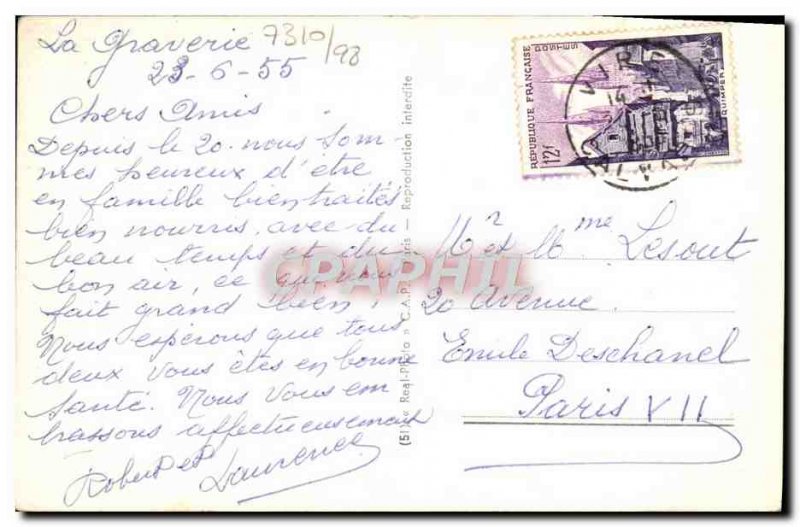 La Graverie 7310/98
23-6-55
Chers Amis
Depuis le 20. nous som-
mes heureux d'être
en famille bien traités
bien nourris, avec du
beau temps et du
bon air, ce qui nous
fait grand bien!
Nous espérons que tous
deux vous êtes en bonne
santé. Nous vous em
brassons affectueusement
Robert et
Laurence
(5) « Real-Photo » C.A.P. Paris — Reproduction interdite
RÉPUBLIQUE FRANÇAISE
POSTES
12F
QUIMPER
VIRE
CALVADOS
Mr et Mme Lesout
20 Avenue
Emile Deschanel
Paris VII
CPAPHIL